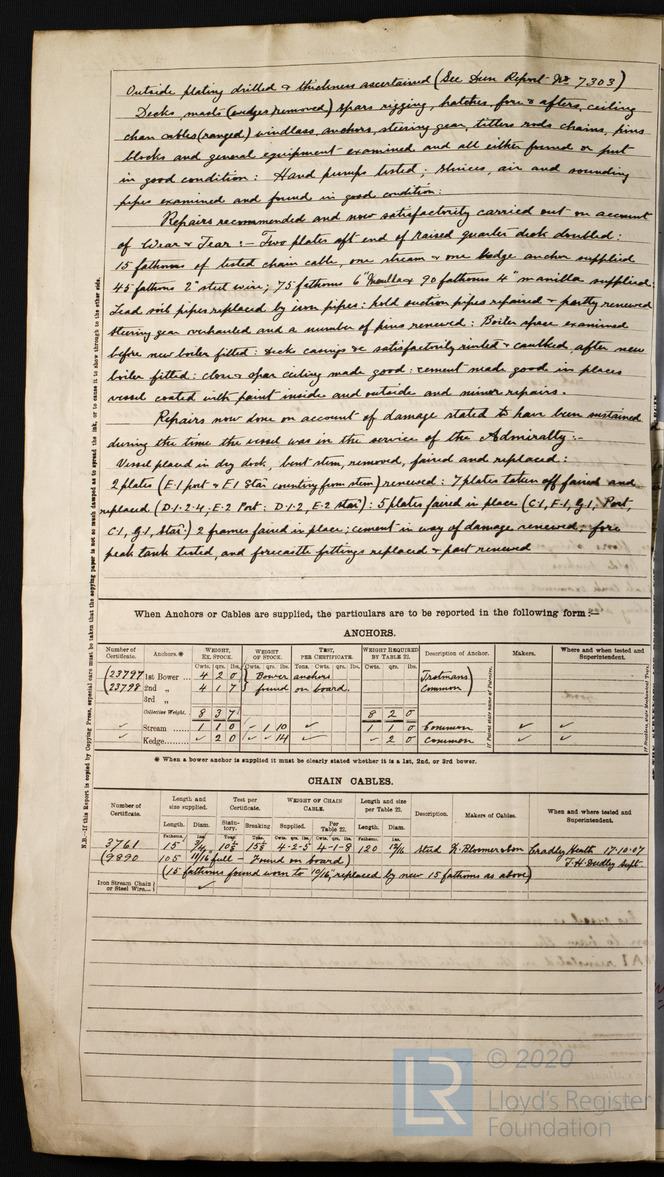 Outside plating drilled & thickness ascertained (See Sun Report No 7303)
Decks, masts (wedges removed) spars rigging, hatches, fore & afters, ceiling
chain cables (ranged) windlass, anchors, steering gear, tillers rods chains, pins
blocks and general equipment examined and all either found or put
in good condition : Hand pumps tested ; Sluices, air and sounding
pipes examined and found in good condition :
Repairs recommended and now satisfactorily carried out on account
of Wear & Tear :- Two plates aft end of raised quarter deck doubled :
15 fathoms of tested chain cable, one stream & one kedge anchor supplied
45 fathoms 2" steel wire ; 75 fathoms 6" Manilla & 90 fathoms 4" manilla supplied :
Lead soil pipes replaced by iron pipes : hold suction pipes repaired & partly renewed
steering gear overhauled and a number of pins renewed : Boiler space examined
before new boiler fitted : deck casings &c satisfactorily riveted & caulked, after new
boiler fitted : close & spar ceiling made good : cement made good in places
vessel coated with paint inside and outside and minor repairs.
Repairs now done on account of damage stated to have been sustained
during the time the vessel was in the service of the Admiralty :-
Vessel placed in dry dock, bent stem, removed, faired and replaced :
2 plates (E.1 port & F.1 Star counting from stem) renewed : 7 plates taken off faired and
replaced (D.1.2.4, E.2 Port : D.1.2, E.2 Star) : 5 plates faired in place (C.1, F.1, G.1, Port,
C.1, G.1, Star) 2 frames faired in place ; cement in way of damage renewed, fore
peak tank tested, and forecastle fittings replaced & part renewed
N.B.—If this Report is copied by Copying Press, especial care must be taken that the copying paper is not so much damped as to spread the ink, or to cause it to show through to the other side.
When Anchors or Cables are supplied, the particulars are to be reported in the following form :—
ANCHORS.
Number of Certificate. Anchors.* WEIGHT, EX. STOCK. WEIGHT OF STOCK. TEST, PER CERTIFICATE. WEIGHT REQUIRED BY TABLE 22. Description of Anchor. Makers. Where and when tested and Superintendent.
Cwts. qrs. lbs. Cwts. qrs. lbs. Tons. Cwts. qrs. lbs. Cwts. qrs. lbs.
(23797 1st Bower ... 4 2 0 } Bower anchors Trotmans )
(23798 2nd „ 4 1 7 } found on board. Common )
3rd „
Collective Weight. 8 3 7 8 2 0
✓ Stream ...... 1 1 0 - 1 10 ✓ 1 1 0 Common ✓ ✓
✓ Kedge........ ✓ 2 0 ✓ ✓ 14 ✓ - 2 0 Common ✓ ✓
* When a bower anchor is supplied it must be clearly stated whether it is a 1st, 2nd, or 3rd bower.
CHAIN CABLES.
Number of Certificate. Length and size supplied. Test per Certificate. WEIGHT OF CHAIN CABLE. Length and size per Table 22. Description. Makers of Cables. When and where tested and Superintendent.
Length. Diam. Statutory. Breaking Supplied. Per Table 22. Length. Diam.
3761 15 4-2-5 4-1-8 120 stud N. Bloomer & Son Cradley Heath 17-10-07
(9890 105 11/16 full - Found on board) T.H. Dudley Supt
(15 fathoms found worn to 10/16", replaced by new 15 fathoms as above)
Iron Stream Chain or Steel Wire... ✓
© 2020
LR
Lloyd's Register
Foundation